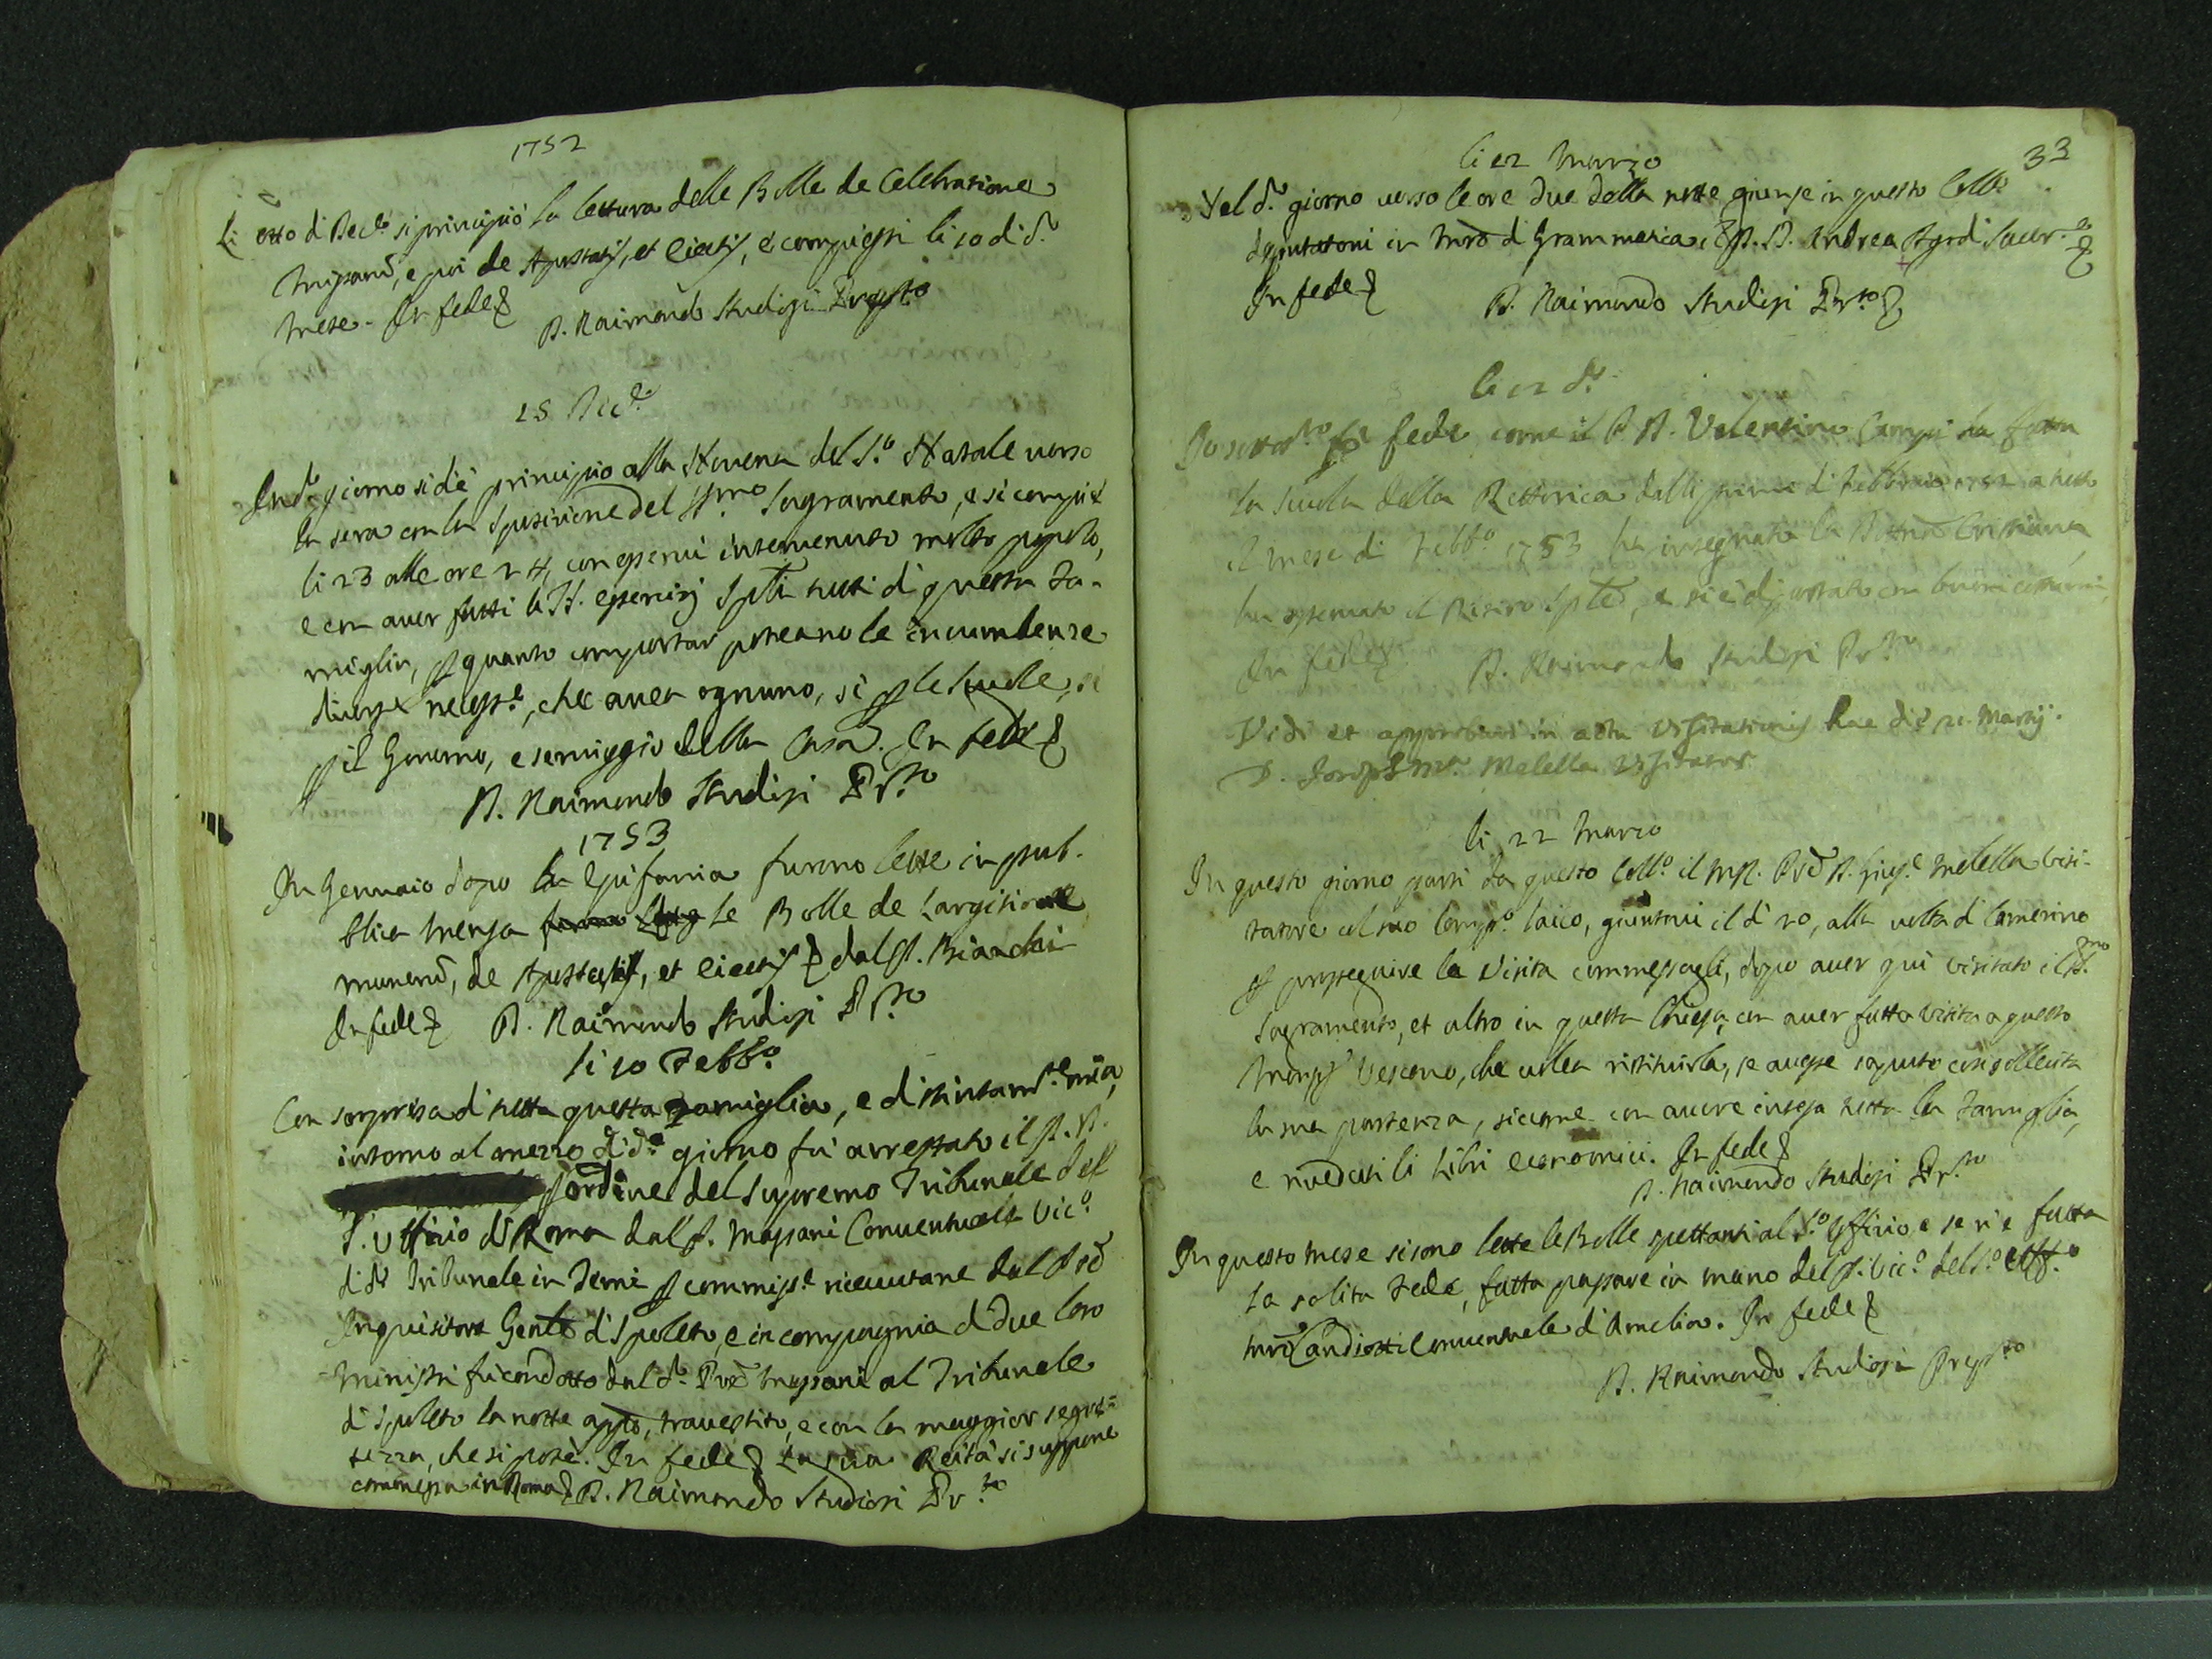 1752
Li otto di Dec.e si principiò la lettura delle Bolle de Celebratione
Missarū, e poi de Apostatis, et Eiectis, e compiessi li 10 di d.o
Mese. In fede
D. Raimondo Studiosi Prep.to
15 Dec.e
In d.o giorno si diè principio alla Novena del S.o Natale verso
la sera con la Sposizione del SS.mo Sagramento, e si compiè
li 23 alle ore 24, con esservi intervenuto molto popolo,
e con aver fatti li SS. esercizj Splī tutti di questa Fa-
miglia, p quanto comportar poteano le incumbenze
diverse necess.e, che avea ognuno, sì p le scuole, sì
p il Governo, e serviggio della Casa. In fede
D. Raimondo Studiosi Pr.to
1753
In Gennaio dopo la Epifania furono lette in pub-
blica mensa le Bolle de Largitione
munerū, de Apostatis, et Eiectis dal P. Bianchi
In fede D. Raimondo Studiosi Pr.to
li 10 Febb.o
Con sorpresa di tutta questa Famiglia, e distintam.te mia,
intorno al mezzo dì d.o giorno fù arrestato il P. D.
p ordine del Supremo Tribunale del
S. Uffizio di Roma dal P. Massani Conventuale Vic.o
di d.o Tribunale in Terni p commiss.e ricevutane dal Prē
Inquisitore Gen̄le di Spoleto, e in compagnia di due loro
Ministri fù condotto dal d.o Prē Massani al Tribunale
di Spoleto la notte app̄o, travestito, e con la maggior segre-
tezza, che si potè. In fede La sua Reità si suppone
commessa in Roma D. Raimondo Studiosi Pr.to
33
li 12 Marzo
Nel d.o giorno verso le ore due della notte giunse in questo Coll.o
deputatoni in Mrō di Grammatica il P. D. Andrea Sacer.e
In fede D. Raimondo Studiosi Pr.to
li 12 d.o
Io sottos.to fò fede come il P. D. Valentino Campi ha fatta
la Scuola della Rettorica dalli primi di Febbraio 1752 a tutto
il mese di Febb.o 1753, ha insegnata la Dottrīa Cristiana,
ha osservato il Ritiro Splē, e si è diportato con buoni costumi,
In fede D. Raimondo Studiosi Pr.to
Vidi et approbavi in actu Visitationis hac die 21 Martij.
D. Joseph M.a Melella Visitator.
li 22 Marzo
In questo giorno partì da questo Coll.o il M.R. Prē D. Gius.e Melella Visi-
tatore col suo Comp.o laico, giuntovi il dì 20, alla volta di Camerino
p proseguire la Visita commessagli, dopo aver quì visitato il SS.mo
Sagramento, et altro in questa Chiesa, con aver fatta visita a questo
Monsig.r Vescovo, che volea ristituirla, se avesse saputo così sollecita
la sua partenza, siccome con avere intesa tutta la Famiglia,
e riveduti li Libri economici. In fede
D. Raimondo Studiosi Pr.to
In questo Mese si sono lette le Bolle spettanti al S.o Uffizio, e se n'è fatta
la solita Fede, fatta passare in mano del P. Vic.o del S.o Uff.o
Conventuale d'Amelia. In fede
D. Raimondo Studiosi Prep.to